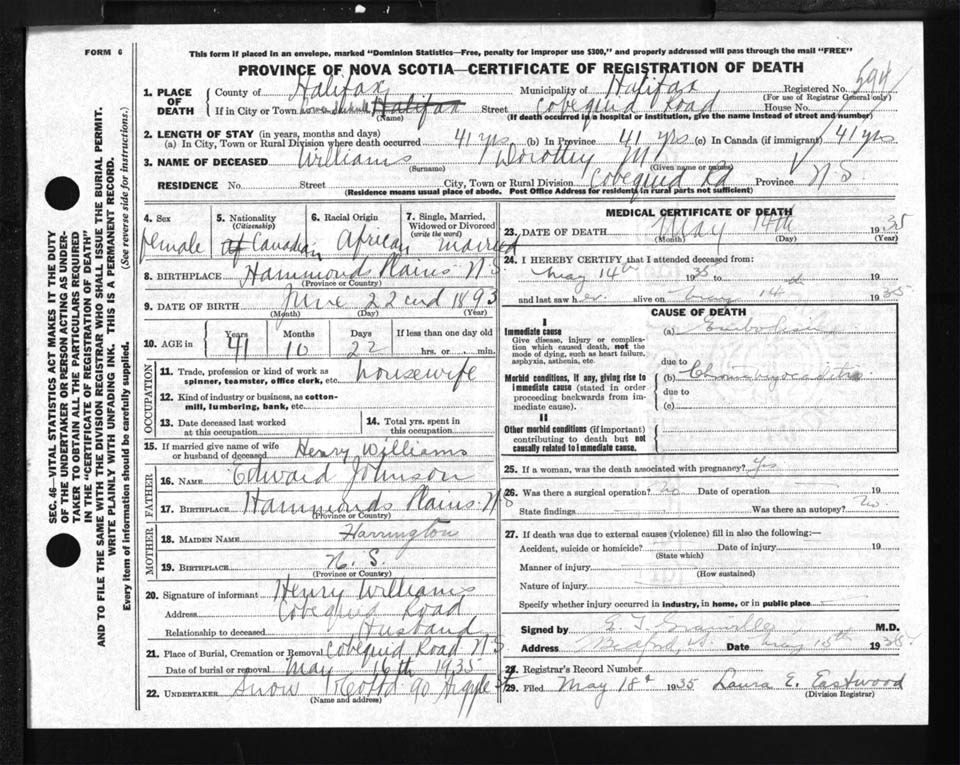 FORM 6
This form if placed in an envelope, marked "Dominion Statistics—Free, penalty for improper use $300," and properly addressed will pass through the mail "FREE"
PROVINCE OF NOVA SCOTIA—CERTIFICATE OF REGISTRATION OF DEATH
SEC. 46—VITAL STATISTICS ACT MAKES IT THE DUTY
OF THE UNDERTAKER OR PERSON ACTING AS UNDER-
TAKER TO OBTAIN ALL THE PARTICULARS REQUIRED
IN THE "CERTIFICATE OF REGISTRATION OF DEATH"
AND TO FILE THE SAME WITH THE DIVISION REGISTRAR WHO SHALL ISSUE THE BURIAL PERMIT.
WRITE PLAINLY WITH UNFADING INK. THIS IS A PERMANENT RECORD.
Every item of information should be carefully supplied. (See reverse side for instructions.)
1. PLACE OF DEATH
County of Halifax Municipality of Halifax Registered No. 594
(For use of Registrar General only)
If in City or Town Halifax Street Cobequid Road House No.
(Name) (If death occurred in a hospital or institution, give the name instead of street and number)
2. LENGTH OF STAY (in years, months and days)
(a) In City, Town or Rural Division where death occurred 41 yrs (b) In Province 41 yrs (c) In Canada (if immigrant) 41 yrs
3. NAME OF DECEASED Williams Dorothy M
(Surname) (Given name or names)
RESIDENCE No. Street City, Town or Rural Division Cobequid Rd Province N S
(Residence means usual place of abode. Post Office Address for residents in rural parts not sufficient)
4. Sex 5. Nationality (Citizenship) 6. Racial Origin 7. Single, Married, Widowed or Divorced (write the word)
female Canadian African married
8. BIRTHPLACE Hammonds Plains N S
(Province or Country)
9. DATE OF BIRTH June 22nd 1893
(Month) (Day) (Year)
10. AGE in Years Months Days If less than one day old
41 10 22 hrs. or min.
OCCUPATION
11. Trade, profession or kind of work as spinner, teamster, office clerk, etc. housewife
12. Kind of industry or business, as cotton-mill, lumbering, bank, etc.
13. Date deceased last worked at this occupation
14. Total yrs. spent in this occupation
15. If married give name of wife or husband of deceased Henry Williams
FATHER
16. NAME Edward Johnson
17. BIRTHPLACE Hammonds Plains N S
(Province or Country)
MOTHER
18. MAIDEN NAME Harrington
19. BIRTHPLACE N. S.
(Province or Country)
20. Signature of informant Henry Williams
Address Cobequid Road
Relationship to deceased Husband
21. Place of Burial, Cremation or Removal Cobequid Road N S
Date of burial or removal May 16th 1935
22. UNDERTAKER Snow 90 Argyle St
(Name and address)
MEDICAL CERTIFICATE OF DEATH
23. DATE OF DEATH May 14th 1935
(Month) (Day) (Year)
24. I HEREBY CERTIFY that I attended deceased from:
May 14th 1935 to th
and last saw her alive on May 14th 1935
CAUSE OF DEATH
I
Immediate cause (a)
Give disease, injury or complication which caused death, not the mode of dying, such as heart failure, asphyxia, asthenia, etc.
due to
Morbid conditions, if any, giving rise to immediate cause (stated in order proceeding backwards from immediate cause).
(b)
due to
(c)
II
Other morbid conditions (if important) contributing to death but not causally related to immediate cause.
25. If a woman, was the death associated with pregnancy? Yes
26. Was there a surgical operation? No Date of operation 19
State findings Was there an autopsy? No
27. If death was due to external causes (violence) fill in also the following:—
Accident, suicide or homicide? Date of injury 19
(State which)
Manner of injury
(How sustained)
Nature of injury
Specify whether injury occurred in industry, in home, or in public place
Signed by E. T. Granville M.D.
Address Date May 15th 1935
28. Registrar's Record Number
29. Filed May 18t 1935 Laura E. Eastwood
(Division Registrar)